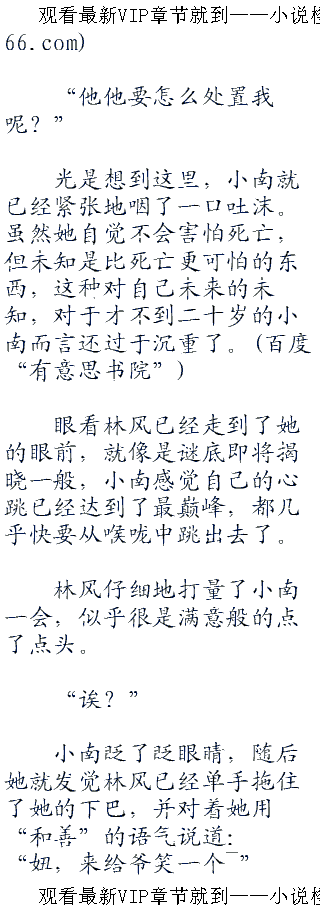 观看最新VIP章节就到——小说楼
66.com)
“他他要怎么处置我
呢？”
光是想到这里，小南就
已经紧张地咽了一口吐沫。
虽然她自觉不会害怕死亡，
但未知是比死亡更可怕的东
西，这种对自己未来的未
知，对于才不到二十岁的小
南而言还过于沉重了。(百度
“有意思书院”)
眼看林风已经走到了她
的眼前，就像是谜底即将揭
晓一般，小南感觉自己的心
跳已经达到了最巅峰，都几
乎快要从喉咙中跳出去了。
林风仔细地打量了小南
一会，似乎很是满意般的点
了点头。
“诶？”
小南眨了眨眼睛，随后
她就发觉林风已经单手拖住
了她的下巴，并对着她用
“和善”的语气说道：
“妞，来给爷笑一个~”
观看最新VIP章节就到——小说楼